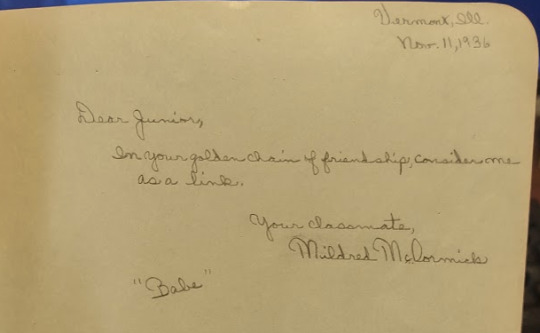 Vermont, Ill.
Nov. 11, 1936
Dear Junior,
In your golden chain of friendship, consider me
as a link.
Your classmate,
Mildred McCormick
"Babe"